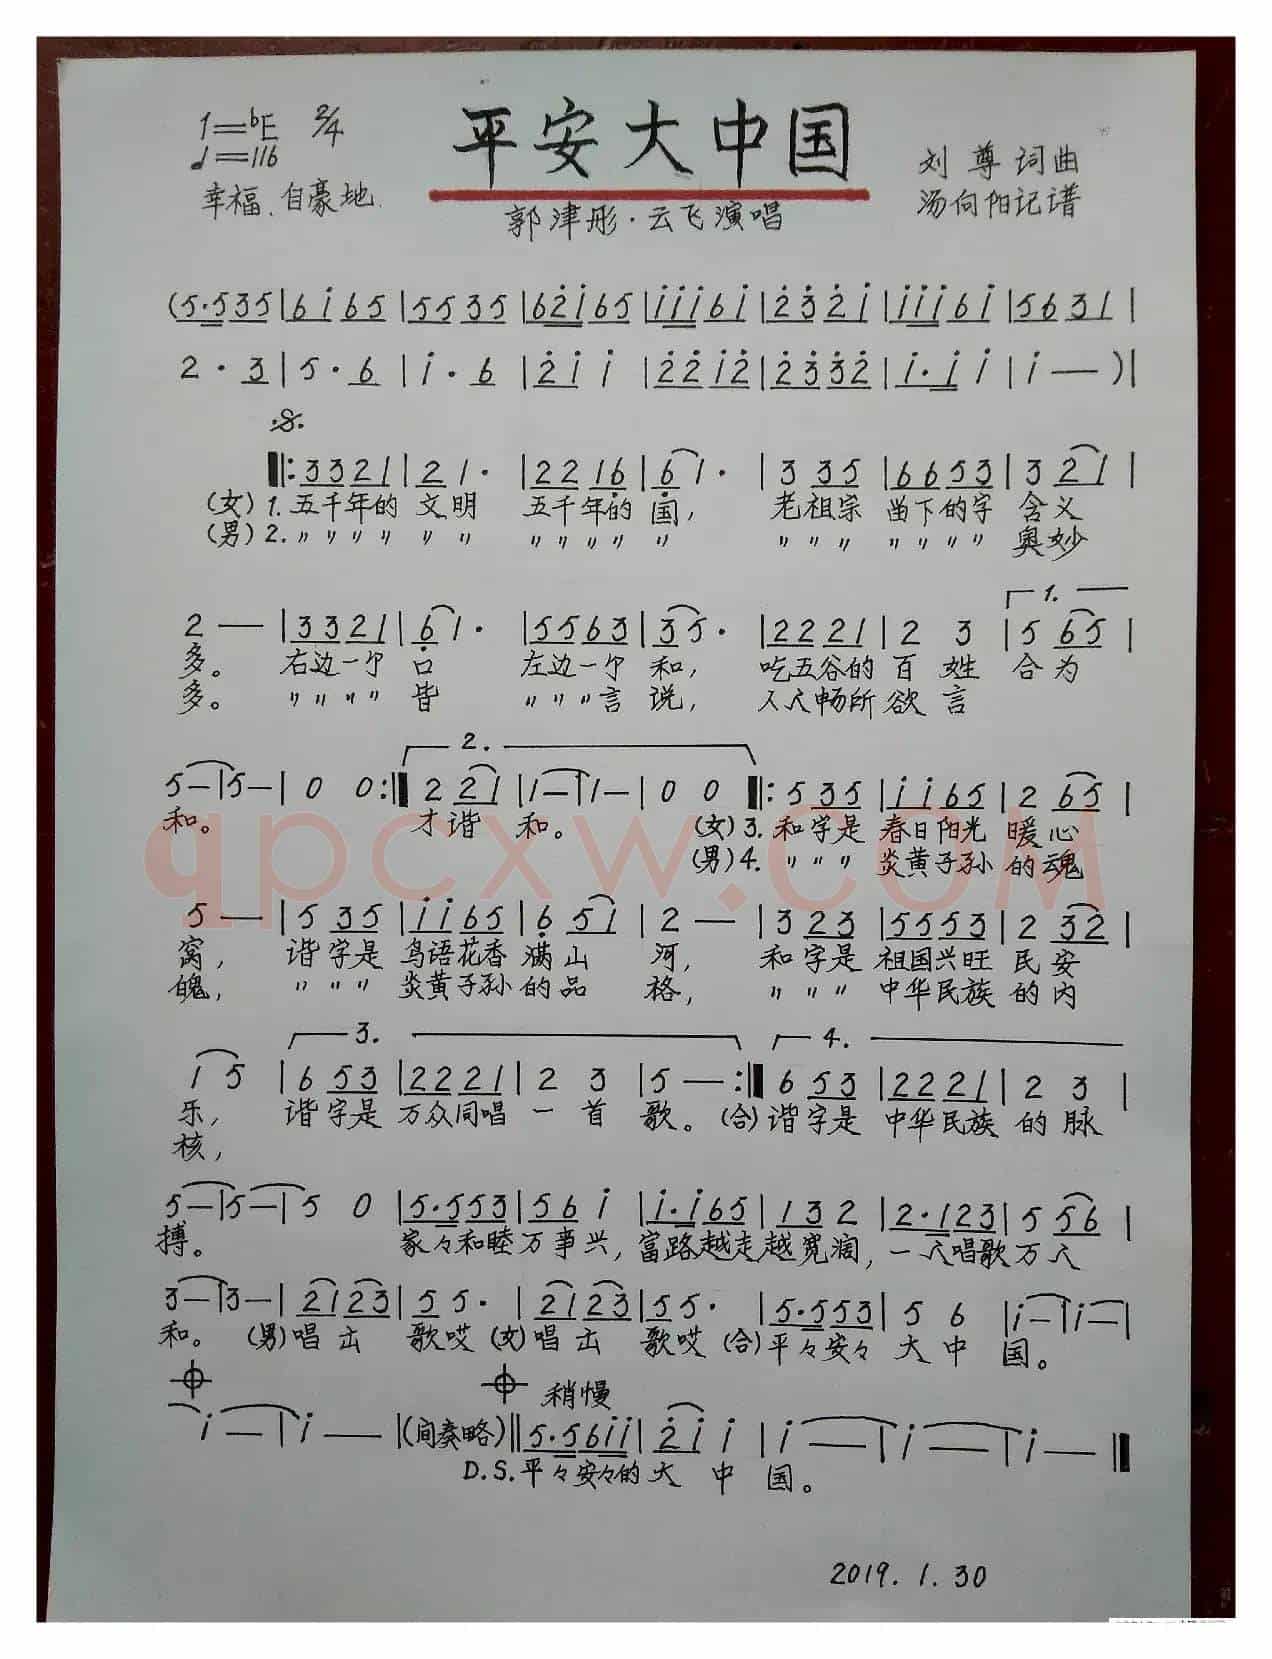 1=♭E 2/4
♩=116
幸福、自豪地
平安大中国
刘尊词曲
汤向阳记谱
郭津彤·云飞演唱
(5·535|6i65|5535|62i65|iii6i|232i|iii6i|5631|
2·3|5·6|i·6|2i i|22i2|2332|i·i i|i—)|
𝄋
‖:3321|21·|2216|61·|3 35|6653|3 21|
(女)1.五千年的 文明 五千年的 国, 老祖宗 留下的字 含义
(男)2.〃〃〃〃 〃〃 〃〃〃〃 〃 〃〃〃 〃〃〃〃 奥妙
1.
2—|3321|61·|5563|35·|2221|2 3|5 65|
多。 右边一个 口 左边一个 和, 吃五谷的 百姓 合为
多。 〃〃〃〃 皆 〃〃〃言 说, 人人畅所 欲言
2.
5—|5—|0 0:‖2 21|1—|1—|0 0‖:5 35|ii65|2 65|
和。 才谐 和。 (女)3.和字是 春日阳光 暖心
(男)4.〃〃〃 炎黄子孙 的魂
5—|5 35|ii65|6 51|2—|3 23|5553|2 32|
窝, 谐字是 鸟语花香 满山 河, 和字是 祖国兴旺 民安
魄, 〃〃〃 炎黄子孙 的品 格, 〃〃〃 中华民族 的内
3. 4.
1 5|6 53|2221|2 3|5—:‖6 53|2221|2 3|
乐, 谐字是 万众同唱 一首 歌。(合)谐字是 中华民族 的脉
核,
5—|5—|5 0|5·553|56 i|i·i65|13 2|2·123|5 56|
搏。 家々和睦 万事兴, 富路越走 越宽阔, 一人唱歌 万人
3—|3—|2123|5 5·|2123|55·|5·553|5 6|i—|i—|
和。 (男)唱出 歌哎 (女)唱出 歌哎 (合)平々安々 大中 国。
𝄌 𝄌 稍慢
i—|i—|(间奏略)‖5·56ii|2i i|i—|i—|i—‖
D.S.平々安々的大 中 国。
2019.1.30
qpcxw.com